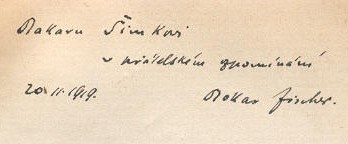 Otakaru Šimkovi
v přátelském vzpomínání
20 11. 1919. Otokar Fischer.